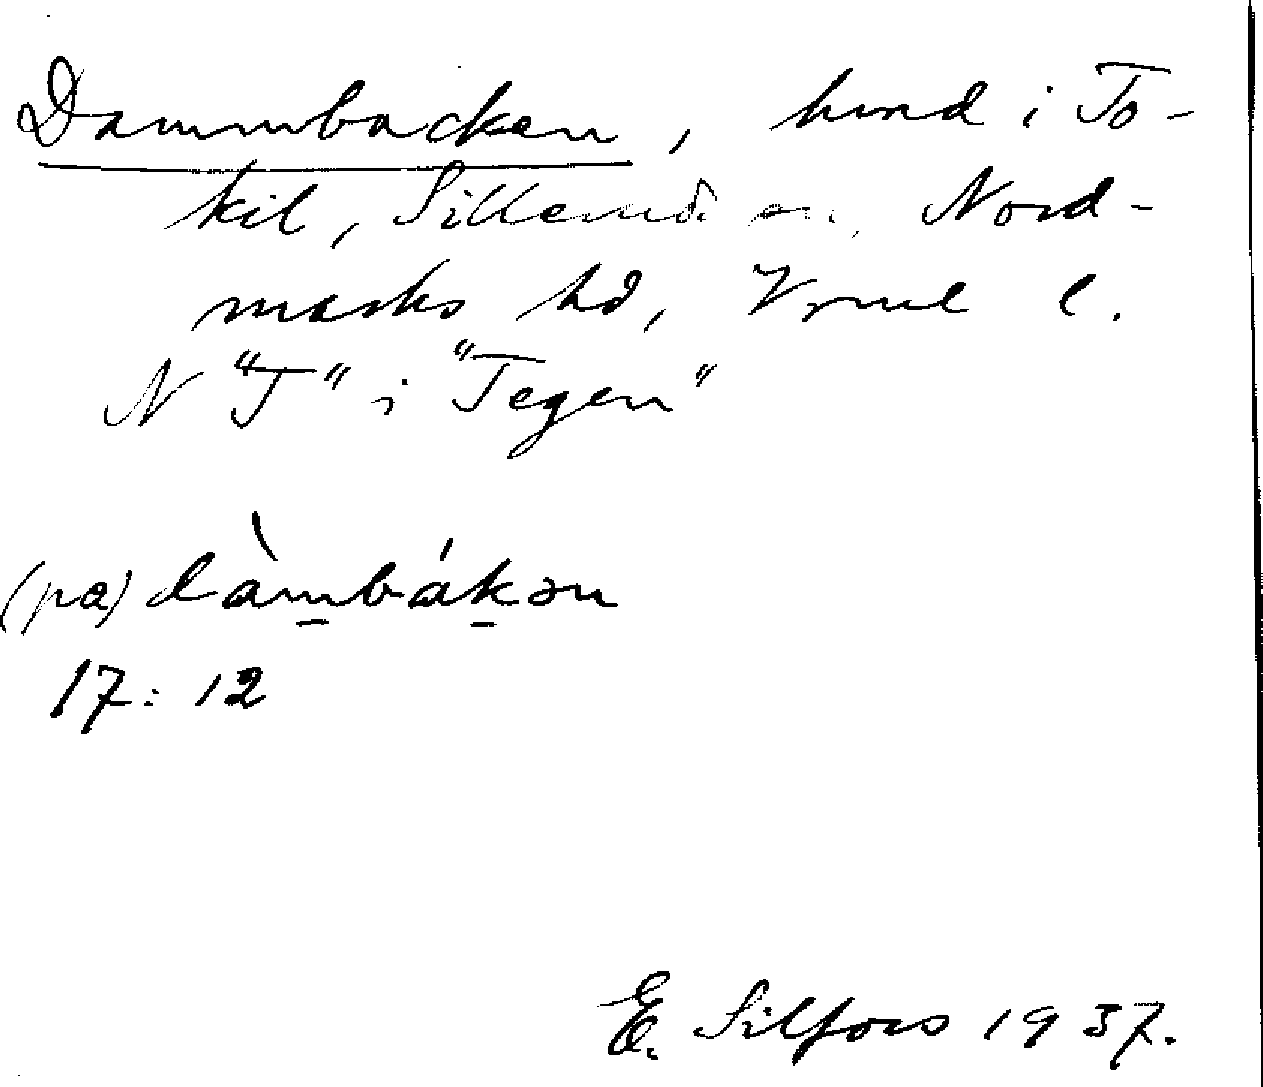 Dammbacken, hund i To-
kil, Sillerud sn, Nord-
marks hd, Vrml l.
N "T" i "Tegen"
(pa) dàmbákən
17:12
E. Silfors 1937.